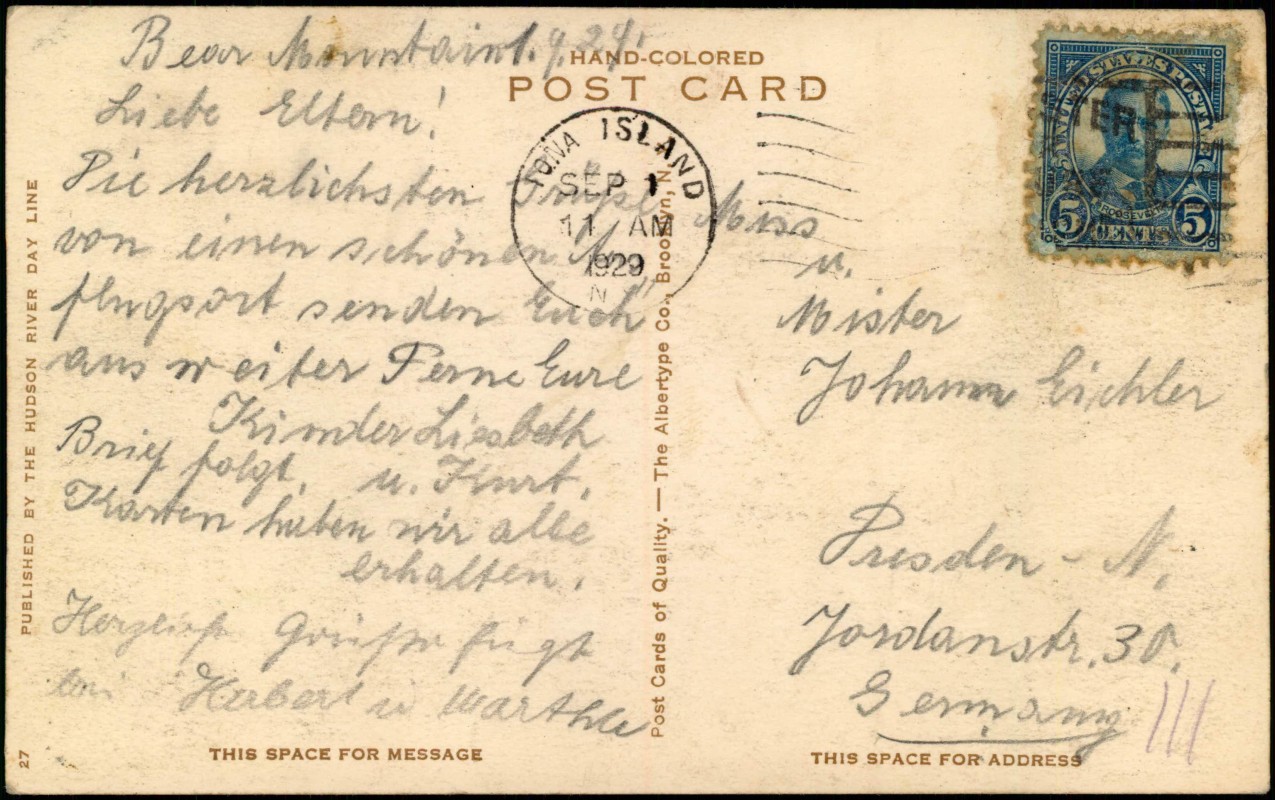 Bear Mountain 1.9.29.
HAND-COLORED
POST CARD
Liebe Eltern!
Die herzlichsten Grüße
von einen schönen Aus
flugsort senden Euch
aus weiter Ferne Eure
Kinder Liesbeth
u. Kurt.
Brief folgt.
Karten haben wir alle
erhalten.
Herzliche Grüße fügt
bei Herbert u Marthle
THIS SPACE FOR MESSAGE
PUBLISHED BY THE HUDSON RIVER DAY LINE
27
Post Cards of Quality. — The Albertype Co., Brooklyn, N.
IONA ISLAND
SEP 1
11 AM
1929
N
UNITED STATES POSTAGE
ROOSEVELT
5 CENTS 5
Miss
u.
Mister
Johann Eichler
Dresden - N.
Jordanstr. 30.
Germany
III
THIS SPACE FOR ADDRESS